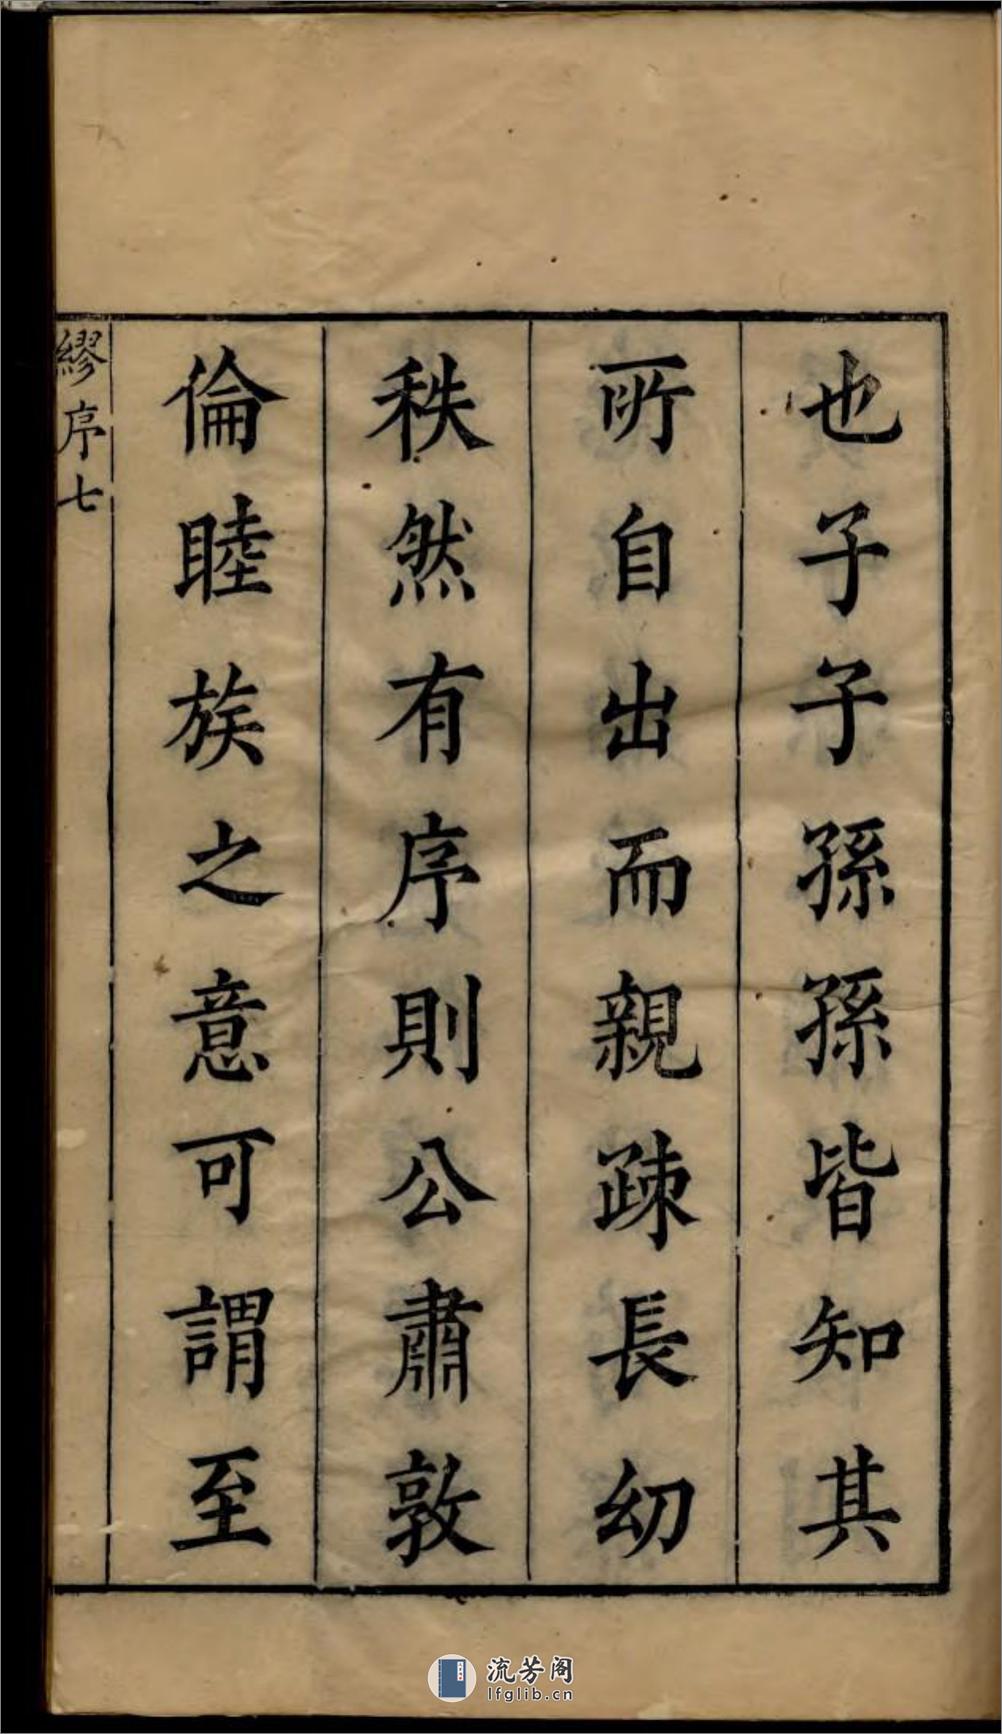 也子子孫孫皆知其
所自出而親疎長幼
秩然有序則公肅敦
倫睦族之意可謂至
繆序七
流芳阁
lfglib.cn